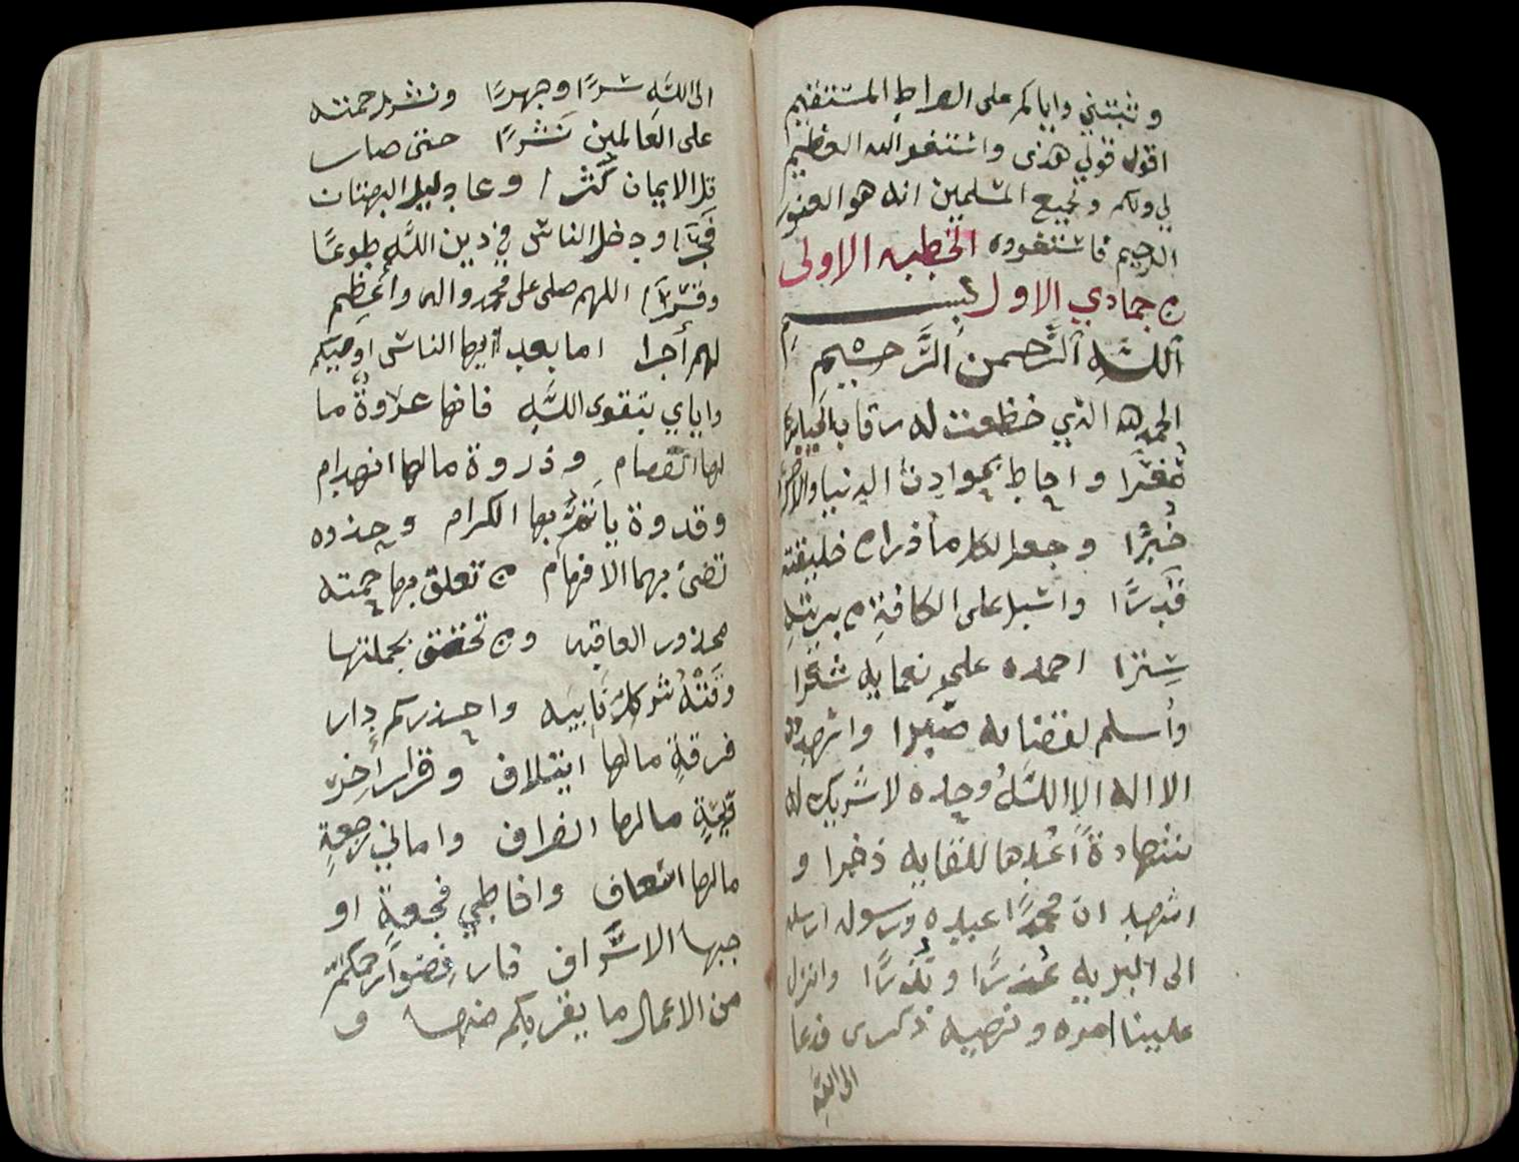 وثبتني واياكم على الصراط المستقيم
اقول قولي هذى واستغفر الله العظيم
لي ولكم ولجميع المسلمين انه هو الغفور
الرحيم فاستغفروه الخطبه الاولى
من جمادي الاول بسم
الله الرحمن الرحيم
الحمد لله الذي خظعت له رقاب الجبابره
واحاط بحوادث الدنيا والاخره
خُبْرًا وجعل لكل ما ذرا من خليقته
قَدْرًا واسبل على الكافة من بريته
سِترا احمده على نعمايه شكرًا
وأسلم لقضايه صبرا واشهد ان
الا اله الا الله وحده لا شريك له
شهادةً أعدها للقايه ذخرا و
اشهد ان محمدًا عبده ورسوله ارسله
الى البريه عُذرًا ونُذرًا وانزل
علينا امره ونهيه ذكرى فدعا
الى الله
الى الله سرًا وجهرًا ونشر رحمته
على العالمين نَشْرًا حتى صار
قل الايمان كُثْرا وعاد ليل البهتان
فَجْرًا ودخل الناس في دين الله طوعًا
وقَسْرًا اللهم صلى على محمد واله واعظم
لهم أجرا اما بعد ايها الناس اوصيكم
واياي بتقوى الله فانها علاوةٌ ما
لها انفصام وذروة مالها انهدام
وقدوة ياتمُّ بها الكرام وجذوه
تضئ بها الافهام من تعلق بها حمته
محذور العاقبه ومن تحقق بحملتها
وَقَتْهُ شر كل نَايبَه واحذركم دار
فرقةٍ مالها ايتلاف وقرار
مالها انصراف واماني رجعةٍ
مالها اسعاف فجعةٍ او
الاسراف فارفضوا رحمكم الله
من الاعمال ما يقربكم منها و